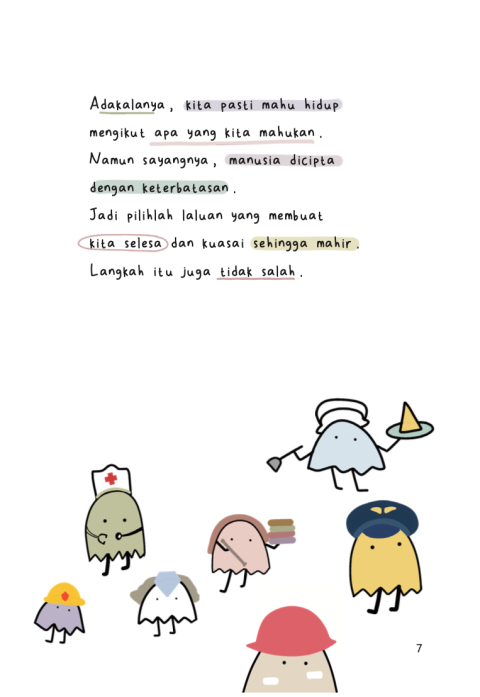 Adakalanya, kita pasti mahu hidup
mengikut apa yang kita mahukan.
Namun sayangnya, manusia dicipta
dengan keterbatasan.
Jadi pilihlah laluan yang membuat
kita selesa dan kuasai sehingga mahir.
Langkah itu juga tidak salah.
7